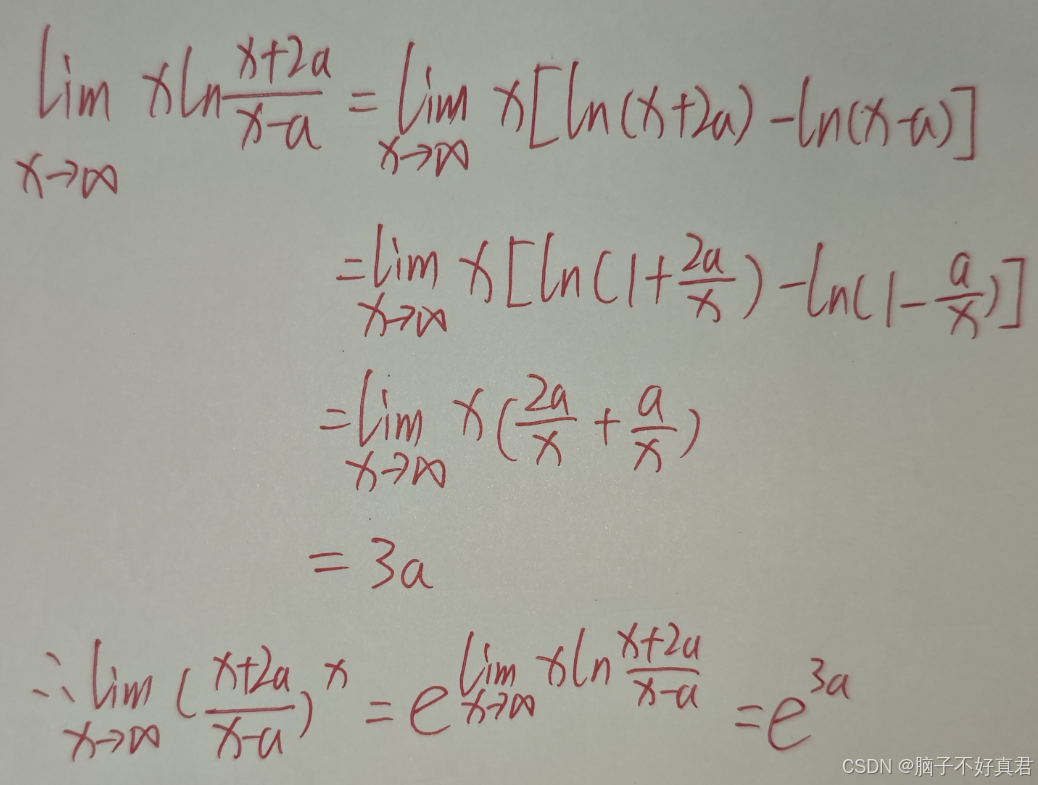 lim x→∞ x ln (x+2a)/(x-a) = lim x→∞ x[ln(x+2a)-ln(x-a)]
= lim x→∞ x[ln(1+2a/x)-ln(1-a/x)]
= lim x→∞ x(2a/x + a/x)
= 3a
∴ lim x→∞ ((x+2a)/(x-a))^x = e^(lim x→∞ x ln (x+2a)/(x-a)) = e^(3a)
CSDN @脑子不好真君